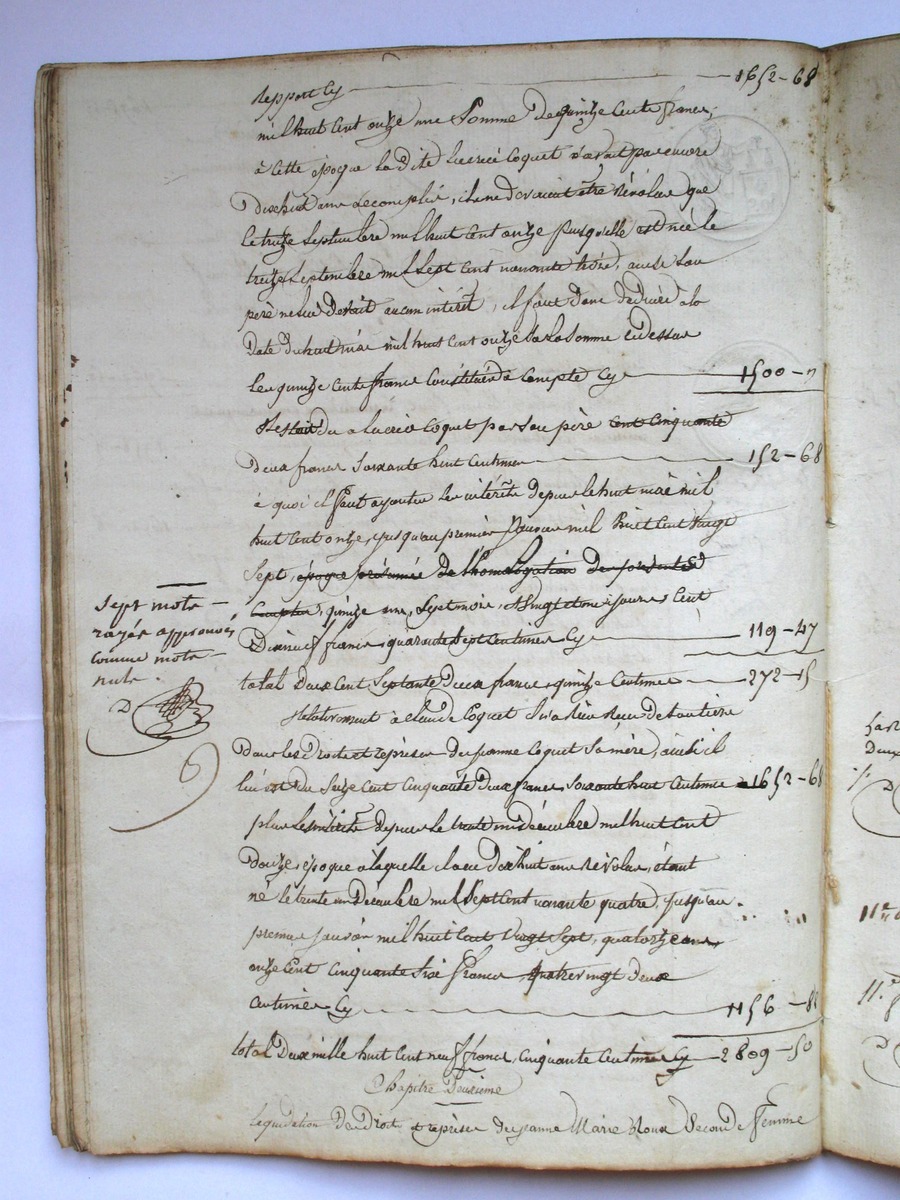 Report Cy — 1652-68
mil huit Cent onze une Somme de quinze Cents francs,
à Cette époque la dite lucrece Coquet n'avait pas encore
Dixhuit ans accomplis, ils ne devaient être révolus que
le treize Septembre mil huit Cent onze puisqu'elle est née le
treize Septembre mil Sept Cent nonante trois, ainsi Son
père ne lui devait aucun intérêt, il faut donc déduire à la
Date du huit mai mil huit Cent onze de la Somme cidessus
les quinze Cents francs Constitués à Compte Cy — 1500-"
Restait du a lucrece Coquet par Son père Cent Cinquante
Deux francs Soixante huit Centimes — 152-68
à quoi il faut ajouter les intérêts depuis le huit mai mil
huit Cent onze, jusqu'au premier Janvier mil huit Cent vingt
Sept, époque présumée de l'homologation des présents
Comptes, quinze ans, Sept mois, & vingt trois jours, Cent
Dixneuf francs, quarante Sept Centimes Cy — 119-47
Sept mots
rayés approuvés
Comme mots
nuls.
D
total Deux Cent Septante Deux francs, quinze Centimes — 272-15
Relativement à Claude Coquet
Dans les Droits et reprises de Jeanne Coquet Sa mère, ainsi il
lui est du Seize Cent Cinquante Deux francs Soixante huit Centimes 1652-68
plus les intérêts depuis le trente un décembre mil huit Cent
Douze, époque à laquelle il a eu Dixhuit ans révolus, étant
né le trente un Décembre mil Sept Cent nonante quatre, jusqu'au
premier Janvier mil huit Cent Vingt Sept, quatorze ans,
onze Cent Cinquante Six francs, quatre vingt Deux
Centimes Cy — 1156-82
total Deux mille huit Cent neuf francs, Cinquante Centimes Cy — 2809-50
Chapitre Deuxième
Liquidation Des Droits et reprises de Jeanne Marie Roux Seconde femme
11e
11.e
D